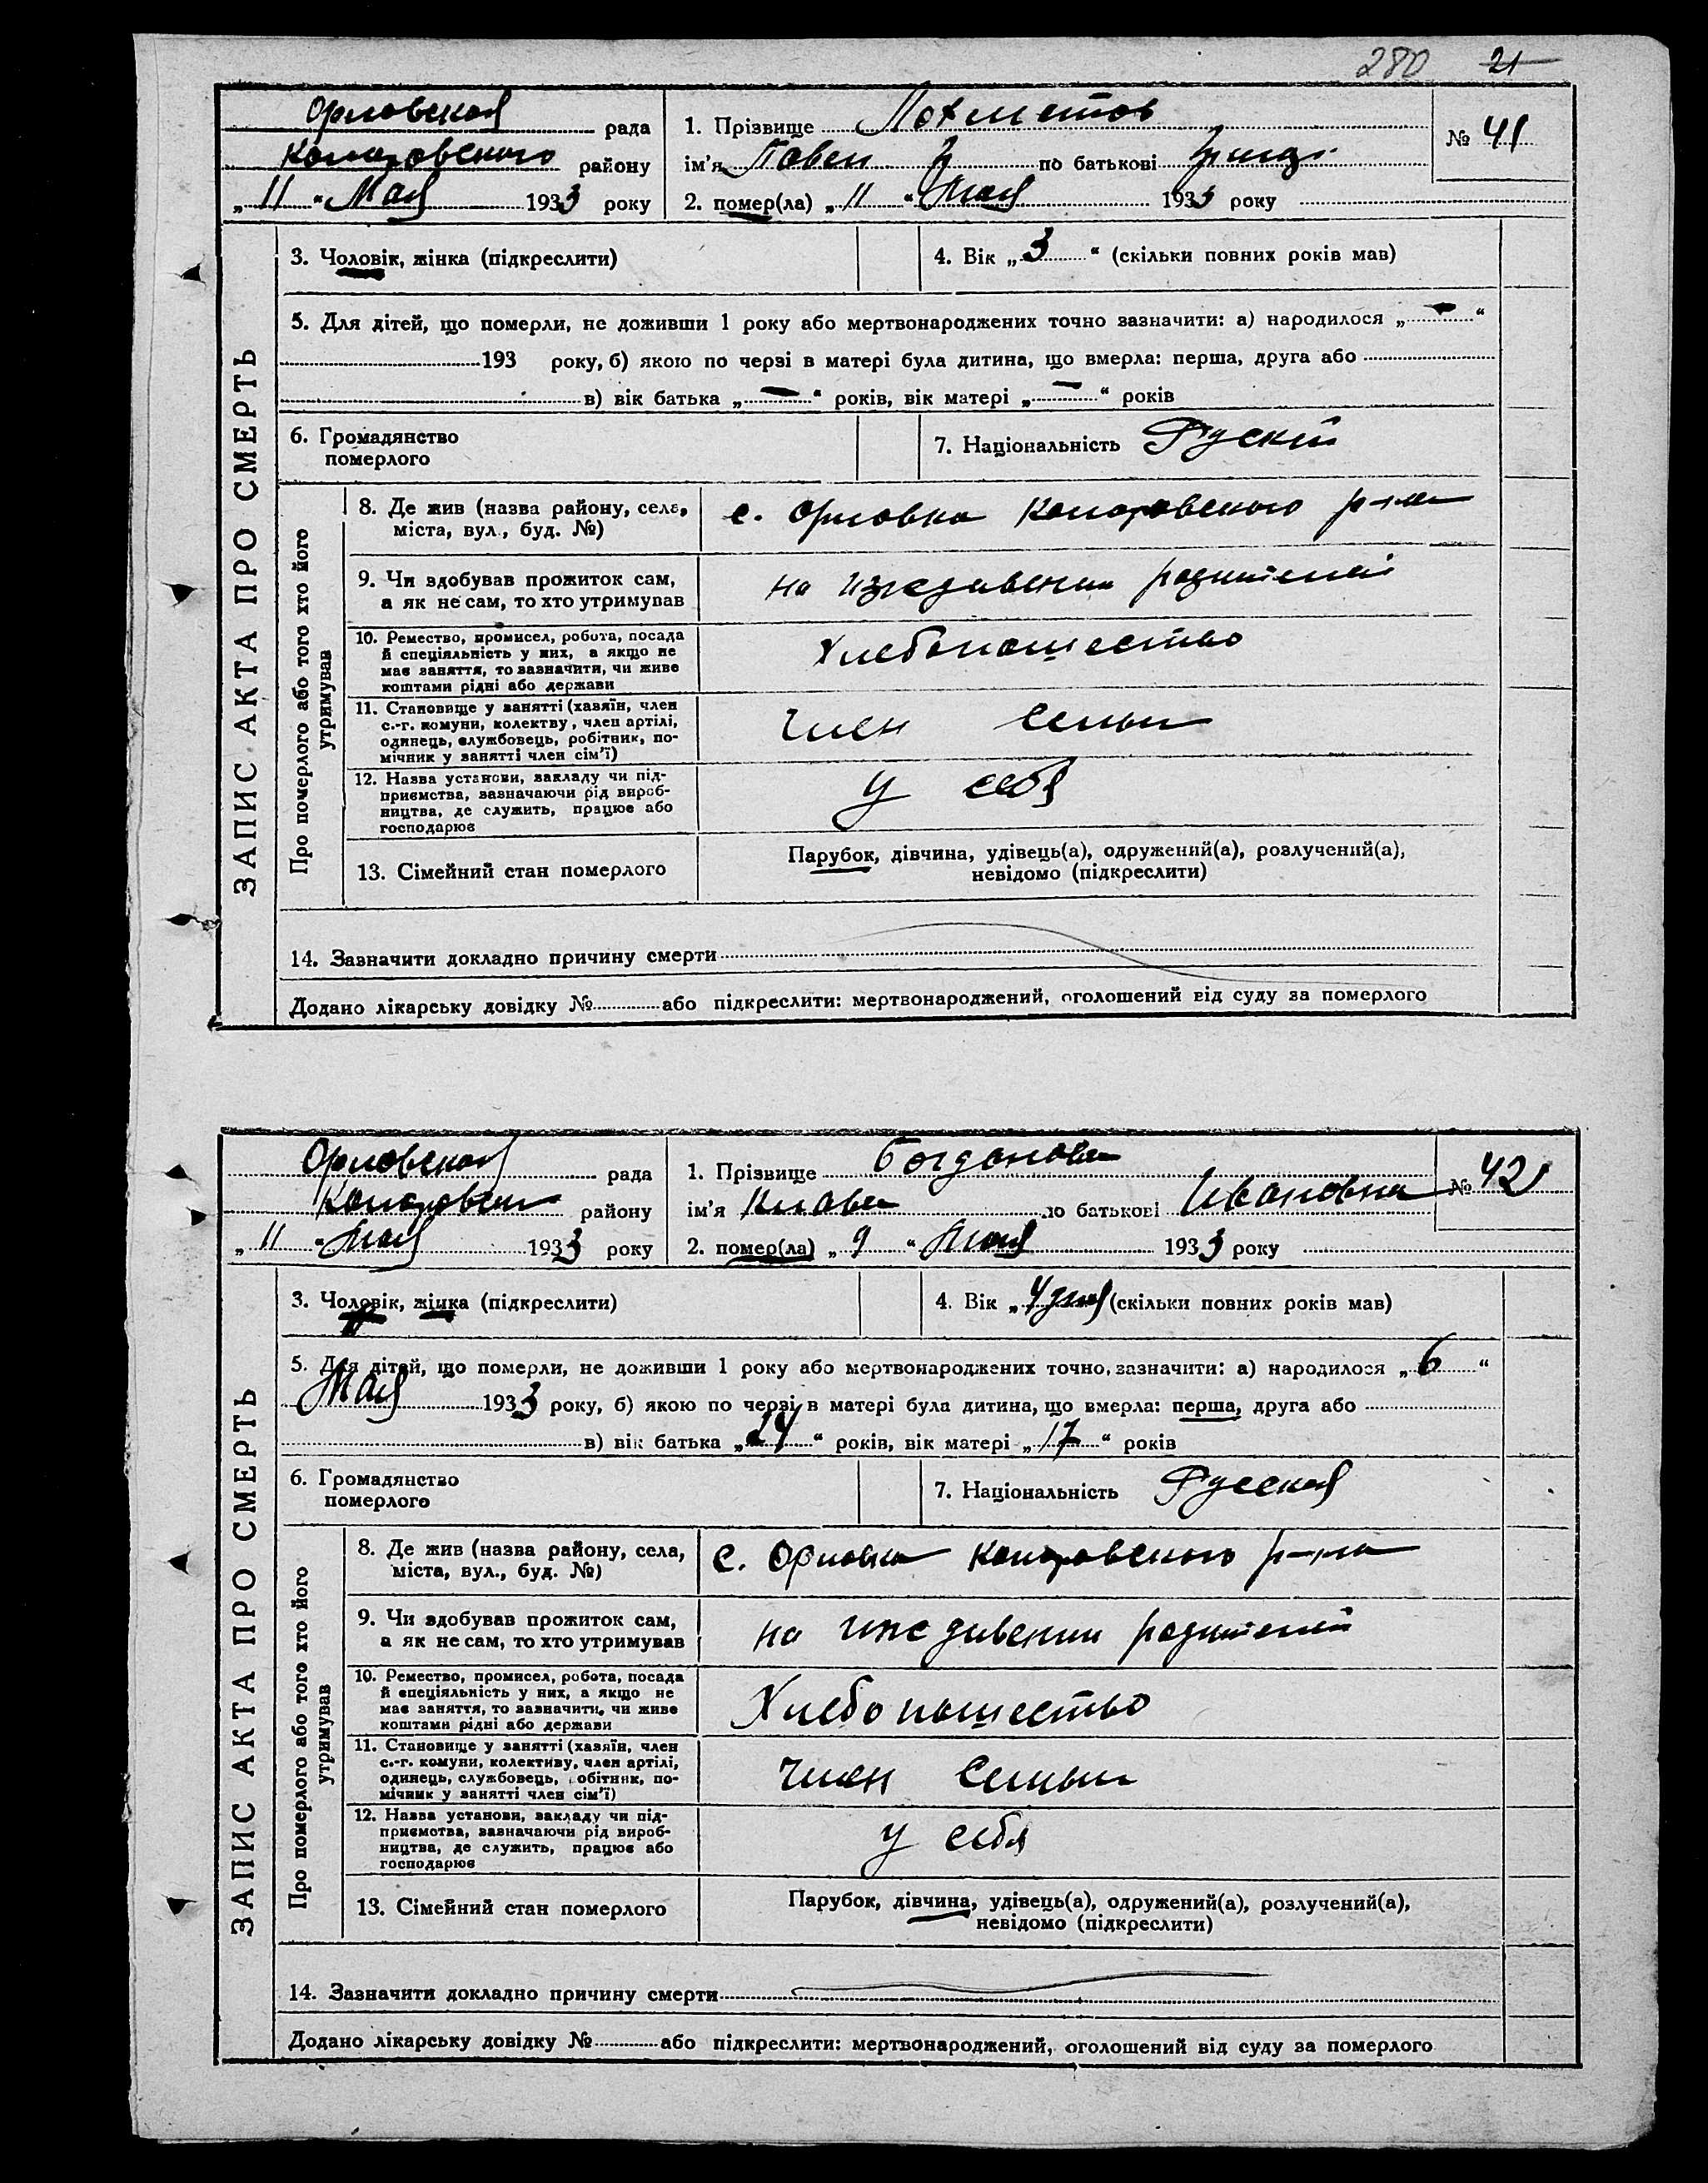 280 21
Орловская рада
Комаровского району
„ 11 “ Мая 1933 року
1. Прізвище Лохматов
ім’я Павел по батькові
2. помер(ла) „ 11 “ Мая 1933 року
№ 41
ЗАПИС АКТА ПРО СМЕРТЬ
3. Чоловік, жінка (підкреслити)
4. Вік „ 3 “ (скільки повних років мав)
5. Для дітей, що померли, не доживши 1 року або мертвонароджених точно зазначити: а) народилося „ — “
193 року, б) якою по черзі в матері була дитина, що вмерла: перша, друга або
в) вік батька „ — “ років, вік матері „ — “ років
6. Громадянство
померлого
7. Національність Руский
Про померлого або того хто його
утримував
8. Де жив (назва району, села,
міста, вул., буд. №)
с. Орловка Комаровского р-на
9. Чи здобував прожиток сам,
а як не сам, то хто утримував
на иждивении родителей
10. Ремество, промисел, робота, посада
й спеціяльність у них, а якщо не
має заняття, то зазначити, чи живе
коштами рідні або держави
Хлебопашество
11. Становище у занятті (хазяїн, член
с.-г. комуни, колектву, член артілі,
одинець, службовець, робітник, по-
мічник у занятті член сім’ї)
член семьи
12. Назва установи, закладу чи під-
приємства, зазначаючи рід вироб-
ництва, де служить, працює або
господарює
у себя
13. Сімейний стан померлого
Парубок, дівчина, удівець(а), одружений(а), розлучений(а),
невідомо (підкреслити)
14. Зазначити докладно причину смерти
Додано лікарську довідку № або підкреслити: мертвонароджений, оголошений від суду за померлого
Орловская рада
району
„ 11 “ Мая 1933 року
1. Прізвище Богданова
ім’я Клава по батькові Ивановна
2. помер(ла) „ 9 “ Мая 1933 року
№ 42
ЗАПИС АКТА ПРО СМЕРТЬ
3. Чоловік, жінка (підкреслити)
4. Вік „ 4 дня (скільки повних років мав)
5. Для дітей, що померли, не доживши 1 року або мертвонароджених точно зазначити: а) народилося „ 6 “
Мая 1933 року, б) якою по черзі в матері була дитина, що вмерла: перша, друга або
в) вік батька „ 24 “ років, вік матері „ 17 “ років
6. Громадянство
померлого
7. Національність Русская
Про померлого або того хто його
утримував
8. Де жив (назва району, села,
міста, вул., буд. №)
с. Орловка Комаровского р-на
9. Чи здобував прожиток сам,
а як не сам, то хто утримував
на иждивении родителей
10. Ремество, промисел, робота, посада
й спеціяльність у них, а якщо не
має заняття, то зазначити, чи живе
коштами рідні або держави
Хлебопашество
11. Становище у занятті (хазяїн, член
с.-г. комуни, колективу, член артілі,
одинець, службовець, робітник, по-
мічник у занятті член сім’ї)
член семьи
12. Назва установи, закладу чи під-
приємства, зазначаючи рід вироб-
ництва, де служить, працює або
господарює
у себя
13. Сімейний стан померлого
Парубок, дівчина, удівець(а), одружений(а), розлучений(а),
невідомо (підкреслити)
14. Зазначити докладно причину смерти
Додано лікарську довідку № або підкреслити: мертвонароджений, оголошений від суду за померлого